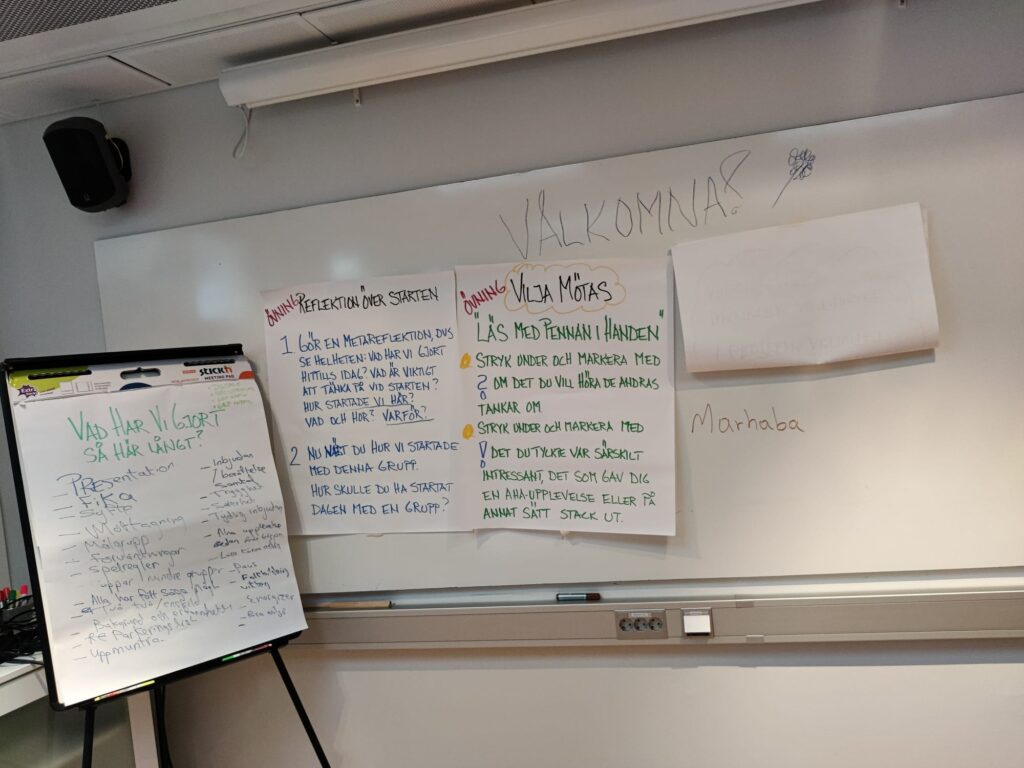 VÄLKOMNA!
ÖVNING REFLEKTION ÖVER STARTEN
1 GÖR EN METAREFLEKTION, DVS
SE HELHETEN: VAD HAR VI GJORT
HITTILLS IDAG? VAD ÄR VIKTIGT
ATT TÄNKA PÅ VID STARTEN?
HUR STARTADE VI HÄR?
VAD OCH HUR? VARFÖR?
2 NU VET DU HUR VI STARTADE
MED DENNA GRUPP.
HUR SKULLE DU HA STARTAT
DAGEN MED EN GRUPP?
ÖVNING VILJA MÖTAS
"LÄS MED PENNAN I HANDEN"
STRYK UNDER OCH MARKERA MED
? OM DET DU VILL HÖRA DE ANDRAS
TANKAR OM
STRYK UNDER OCH MARKERA MED
! DET DU TYCKTE VAR SÄRSKILT
INTRESSANT, DET SOM GAV DIG
EN AHA-UPPLEVELSE ELLER PÅ
ANNAT SÄTT STACK UT.
Marhaba
stick'n
MEETING PAD
VAD HAR VI GJORT
SÅ HÄR LÅNGT?
- PRESentation
- Fika
- Syfte
- Mottagning
- Målgrupp
- Förväntningar
- Spelregler
uppdr i mindre grupper
- Alla har fått säga något
- Bakgrund och
- PE Parkeringslist
- uppmuntra
- Inbjudan
/ berättelse
- Samtal
- Trygghet
- Tydlig inbjudan
- Aha upplevelse
- Lära känna
- paus
- Energizer
- Bra miljö